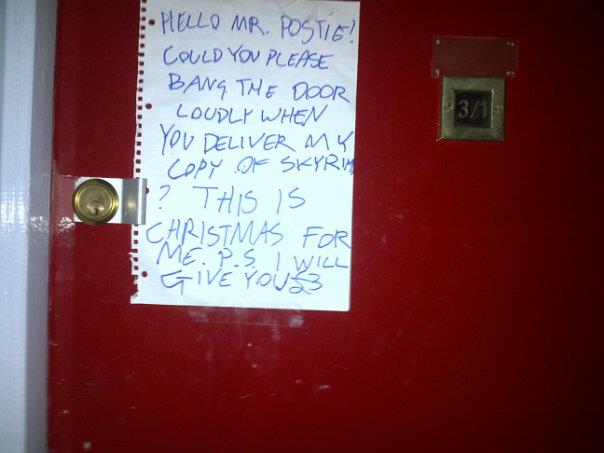 HELLO MR. POSTIE!
COULD YOU PLEASE
BANG THE DOOR
LOUDLY WHEN
YOU DELIVER MY
COPY OF SKYRIM
? THIS IS
CHRISTMAS FOR
ME. P.S. I WILL
GIVE YOU £3
3/1